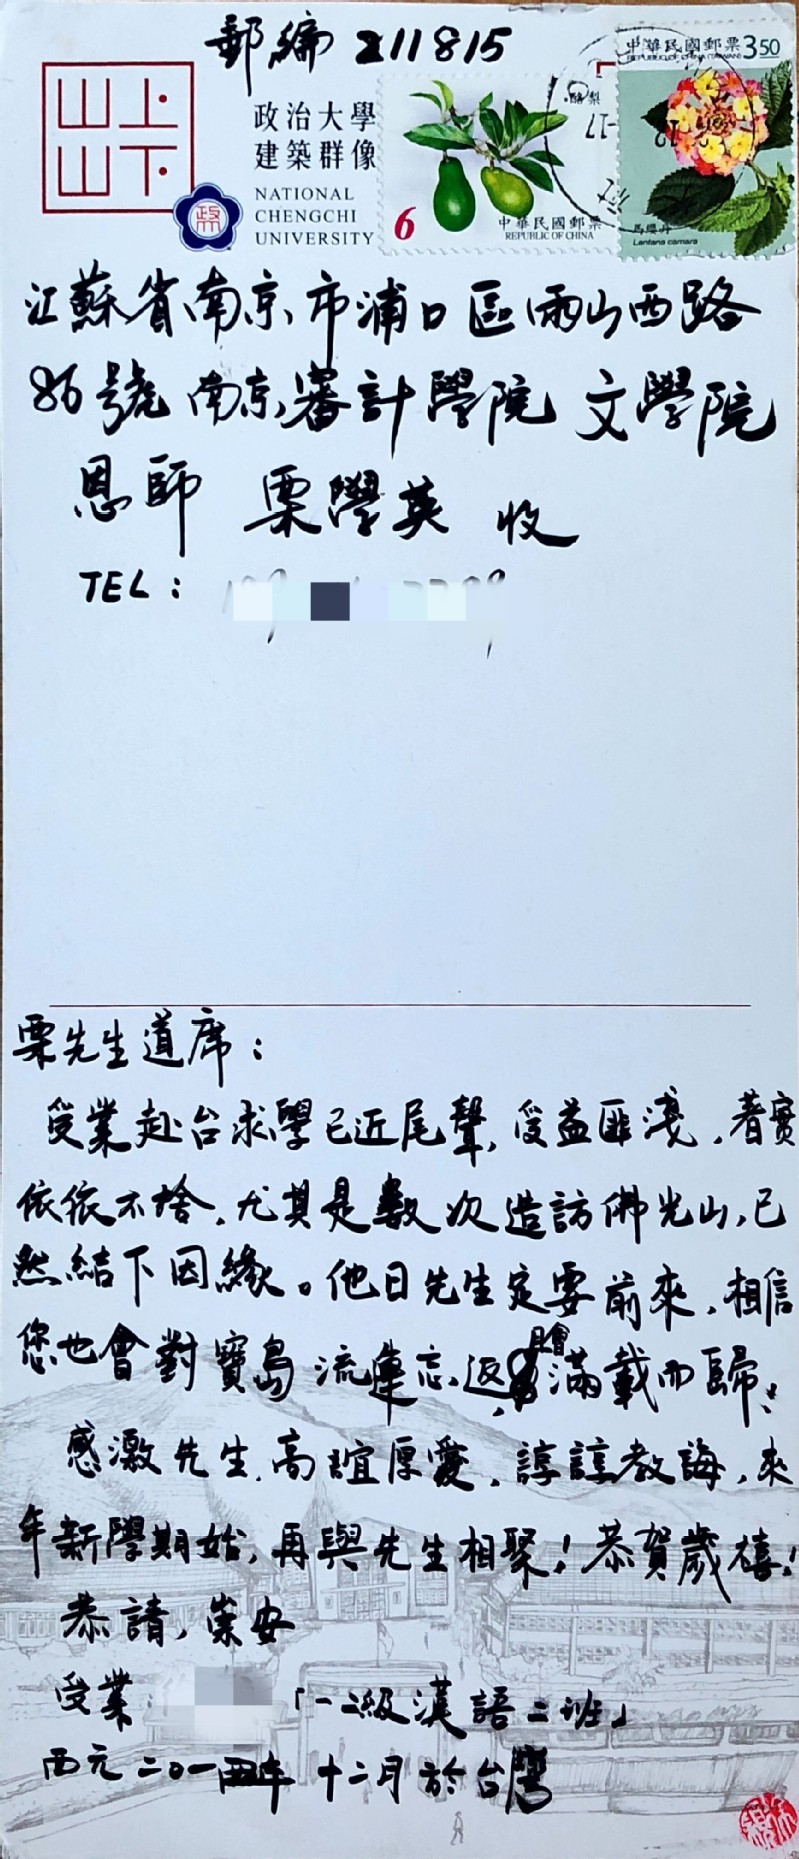 郵編 211815
山上
山下
政
政治大學
建築群像
NATIONAL
CHENGCHI
UNIVERSITY
酪梨
6
中華民國郵票
REPUBLIC OF CHINA
中華民國郵票 350
REPUBLIC OF CHINA (TAIWAN)
馬纓丹
Lantana camara
江蘇省南京市浦口區雨山西路
86號 南京審計學院 文學院
恩師 栗學英 收
TEL:
栗先生道席:
受業赴台求學已近尾聲,受益匪淺,著實
依依不捨,尤其是數次造訪佛光山,已
然結下因緣。他日先生定要前來,相信
您也會對寶島流連忘返,且會滿載而歸!
感激先生高誼厚愛,諄諄教誨,來
年新學期始,再與先生相聚!恭賀歲禧!
恭請,崇安
受業 「一二級漢語二班」
西元二〇一四年十二月於台灣